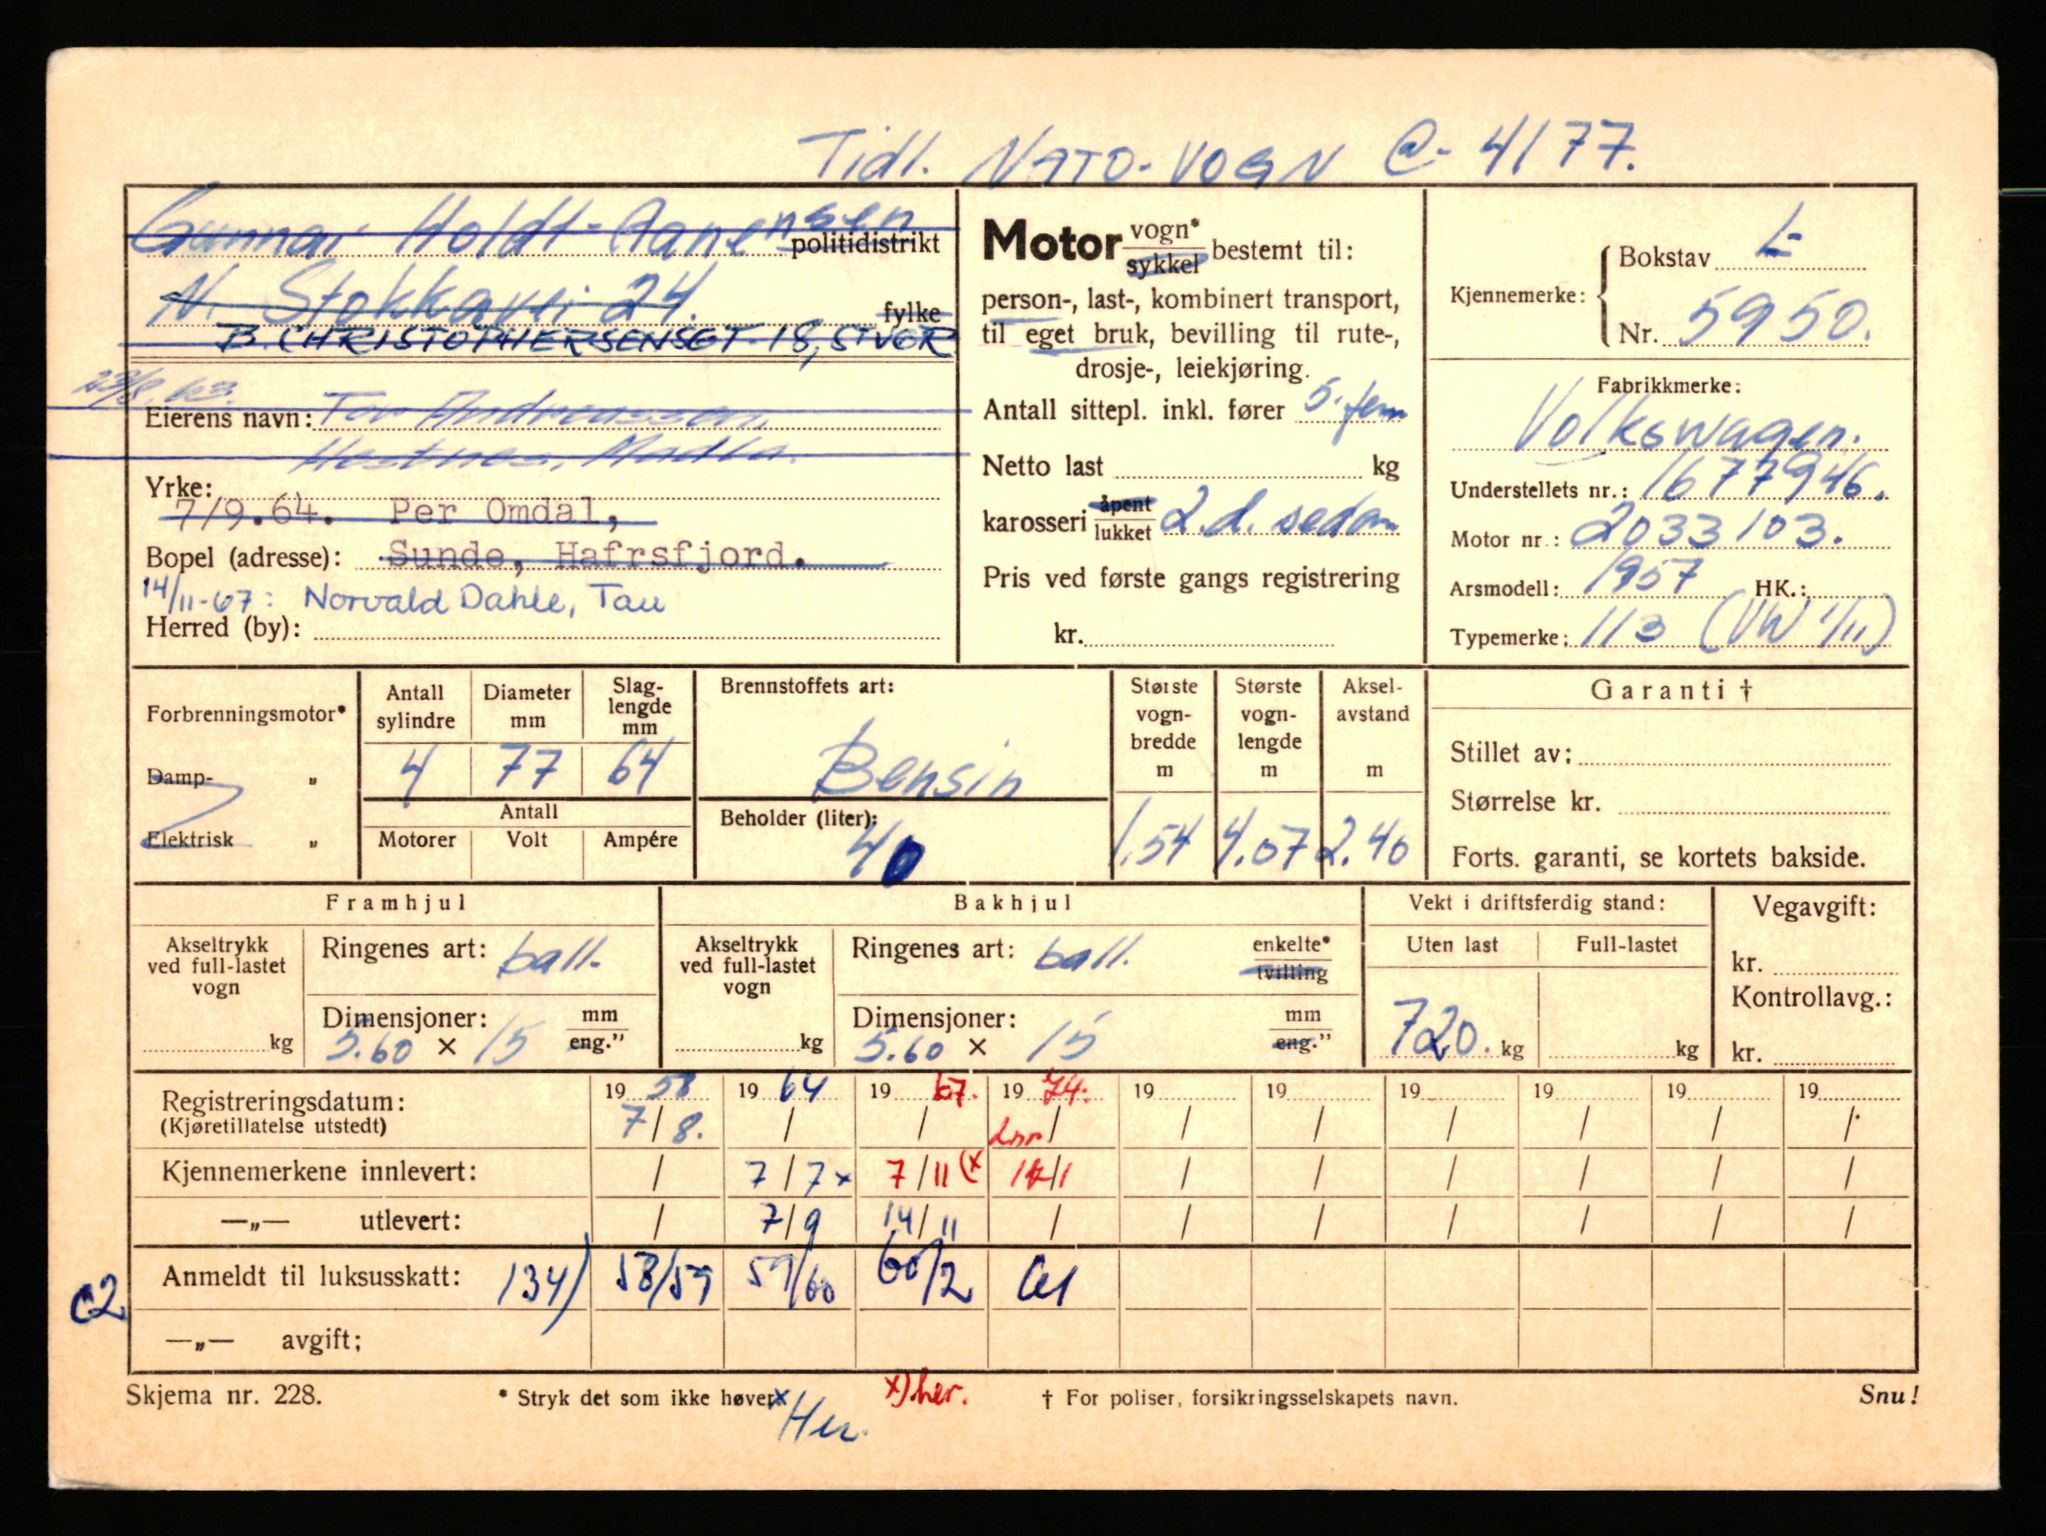 Tidl. NATO-VOGN C- 4177.
Gunnar Holdt-Aanensen
politidistrikt
N. Stokkavei 24.
fylke
B. CHRISTOPHERSENSGT. 18, STVGR
23/8. 63.
Eierens navn: Tor Andreassen,
Hestnes, Madla.
Yrke:
7/9.64. Per Omdal,
Bopel (adresse): Sunde, Hafrsfjord.
14/11-67: Norvald Dahle, Tau
Herred (by):
Motor vogn* sykkel bestemt til:
person-, last-, kombinert transport,
til eget bruk, bevilling til rute-,
drosje-, leiekjøring.
Antall sittepl. inkl. fører 5. fem
Netto last kg
karosseri åpent lukket 2.d. sedan
Pris ved første gangs registrering
kr.
Kjennemerke: Bokstav L-
Nr. 5950.
Fabrikkmerke:
Volkswagen.
Understellets nr.: 1677946.
Motor nr.: 2033103.
Arsmodell: 1957 HK.:
Typemerke: 113 (VW 1/11)
Forbrenningsmotor*
Damp- „
Elektrisk „
Antall sylindre 4
Diameter mm 77
Slag-lengde mm 64
Antall
Motorer Volt Ampére
Brennstoffets art:
Bensin
Beholder (liter):
40
Største vogn-bredde m 1.54
Største vogn-lengde m 4.07
Aksel-avstand m 2.40
Garanti †
Stillet av:
Størrelse kr.
Forts. garanti, se kortets bakside.
Framhjul
Akseltrykk ved full-lastet vogn
kg
Ringenes art: ball.
Dimensjoner: mm
5.60 × 15 eng."
Bakhjul
Akseltrykk ved full-lastet vogn
kg
Ringenes art: ball. enkelte* tvilling
Dimensjoner: mm
5.60 × 15 eng."
Vekt i driftsferdig stand:
Uten last Full-lastet
720. kg kg
Vegavgift:
kr.
Kontrollavg.:
kr.
Registreringsdatum: 19 58 19 64 19 67. 19 74. 19 19 19 19 19 19
(Kjøretillatelse utstedt) 7/8. / / / / / / / / /
Kjennemerkene innlevert: / 7/7 x 7/11 (x / / / / / /
—„— utlevert: / 7/9 14/11 / / / / / / /
Anmeldt til luksusskatt: 134) 58/59 59/60 60/2
C2
—„— avgift;
Skjema nr. 228.
* Stryk det som ikke høver.
x Her.
x) her.
† For poliser, forsikringsselskapets navn.
Snu!